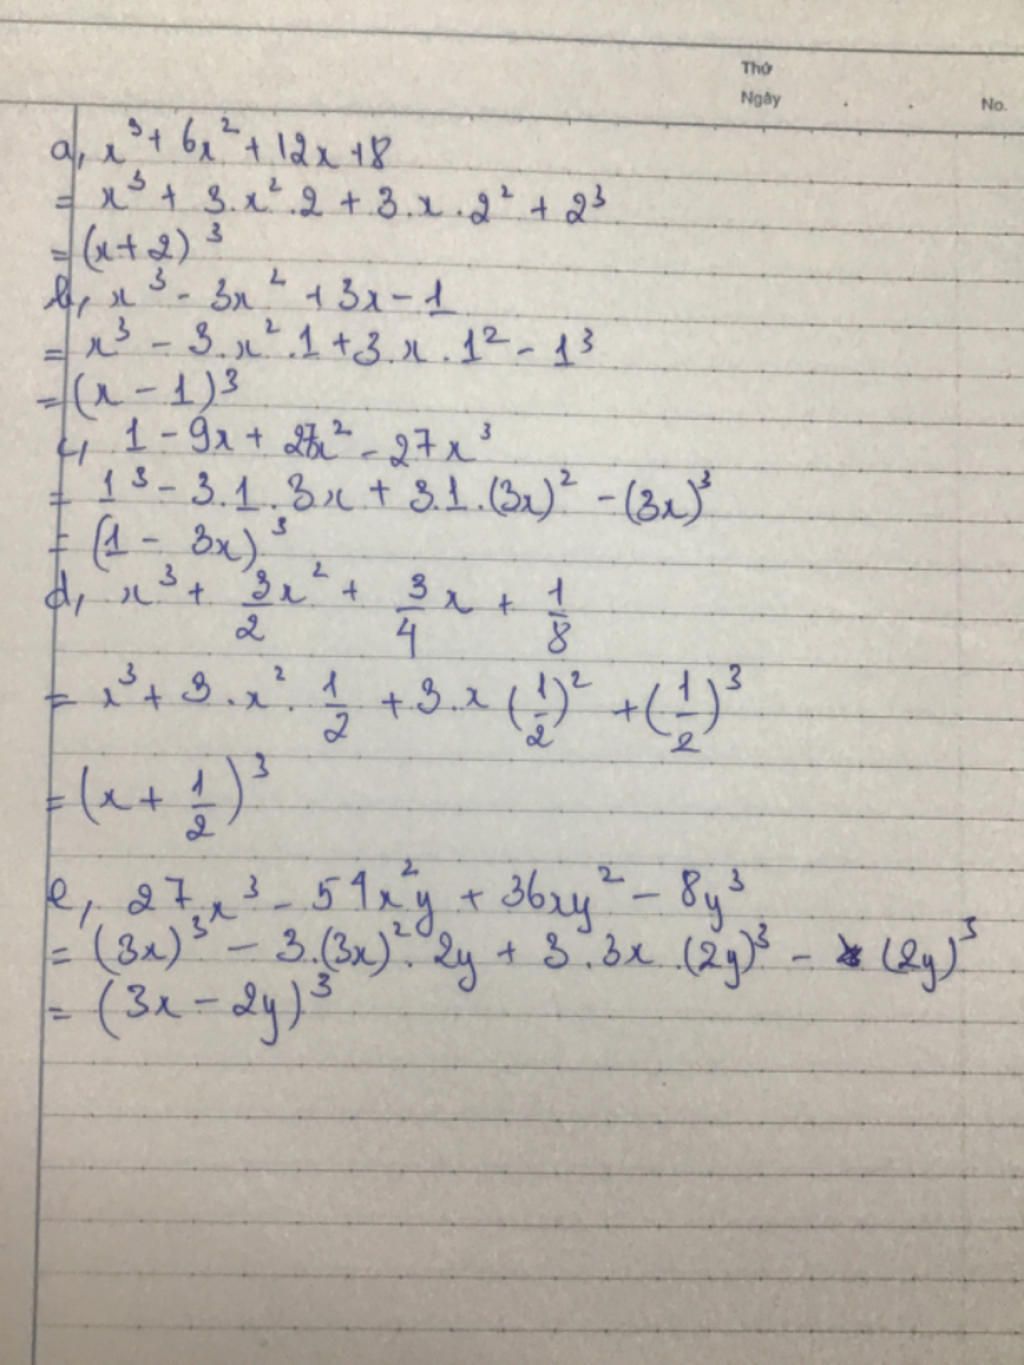 Thứ
Ngày . . No.
a, x³ + 6x² + 12x + 8
= x³ + 3.x².2 + 3.x.2² + 2³
= (x + 2)³
b, x³ - 3x² + 3x - 1
= x³ - 3.x².1 + 3.x.1² - 1³
= (x - 1)³
c, 1 - 9x + 27x² - 27x³
= 1³ - 3.1.3x + 3.1.(3x)² - (3x)³
= (1 - 3x)³
d, x³ + 3/2 x² + 3/4 x + 1/8
= x³ + 3.x².1/2 + 3.x (1/2)² + (1/2)³
= (x + 1/2)³
e, 27x³ - 54x²y + 36xy² - 8y³
= (3x)³ - 3.(3x)².2y + 3.3x.(2y)³ - (2y)³
= (3x - 2y)³